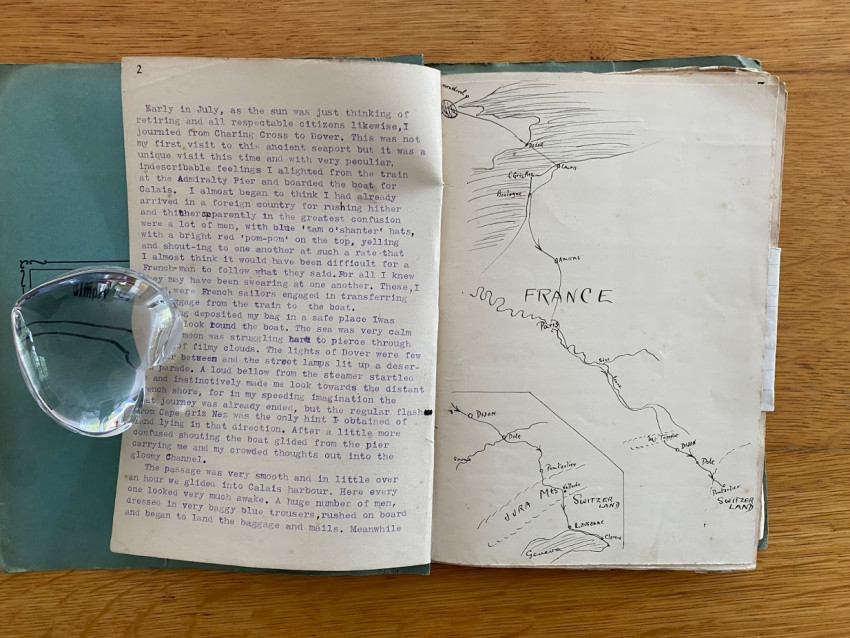 2
Early in July, as the sun was just thinking of
retiring and all respectable citizens likewise,I
journied from Charing Cross to Dover. This was not
my first visit to this ancient seaport but it was a
unique visit this time and with very peculiar,
indescribable feelings I alighted from the train
at the Admiralty Pier and boarded the boat for
Calais. I almost began to think I had already
arrived in a foreign country for rushing hither
and thither apparently in the greatest confusion
were a lot of men, with blue 'tam o'shanter' hats,
with a bright red 'pom-pom' on the top, yelling
and shout-ing to one another at such a rate that
I almost think it would have been difficult for a
French-man to follow what they said.For all I knew
they may have been swearing at one another. These,I
were French sailors engaged in transferring
luggage from the train to the boat.
deposited my bag in a safe place Iwas
look round the boat. The sea was very calm
moon was struggling hard to pierce through
of filmy clouds. The lights of Dover were few
between and the street lamps lit up a deser-
parade. A loud bellow from the steamer startled
and instinctively made me look towards the distant
French shore, for in my speeding imagination the
journey was already ended, but the regular flash
from Cape Gris Nez was the only hint I obtained of
land lying in that direction. After a little more
confused shouting the boat glided from the pier
carrying me and my crowded thoughts out into the
gloomy Channel.
The passage was very smooth and in little over
an hour we glided into Calais harbour. Here every
one looked very much awake. A huge number of men,
dressed in very baggy blue trousers,rushed on board
and began to land the baggage and mails. Meanwhile
Simply
Dover
Calais
C Gris Nez
Boulogne
Amiens
FRANCE
Paris
Dijon
Dole
Pontarlier
SWITZER
LAND
Dijon
Dole
Pontarlier
JURA Mts
Vallorbe
SWITZER
LAND
Lausanne
Clarens
Geneva